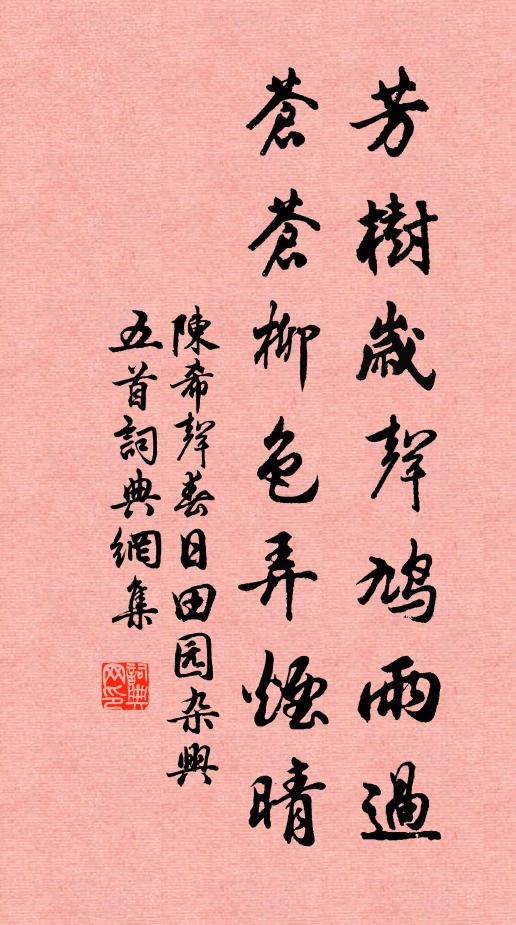 芳樹歲聲鳩雨過
蒼蒼柳色弄煙晴
陳希聲春日田园杂興
五首詞典網集
詞典網印